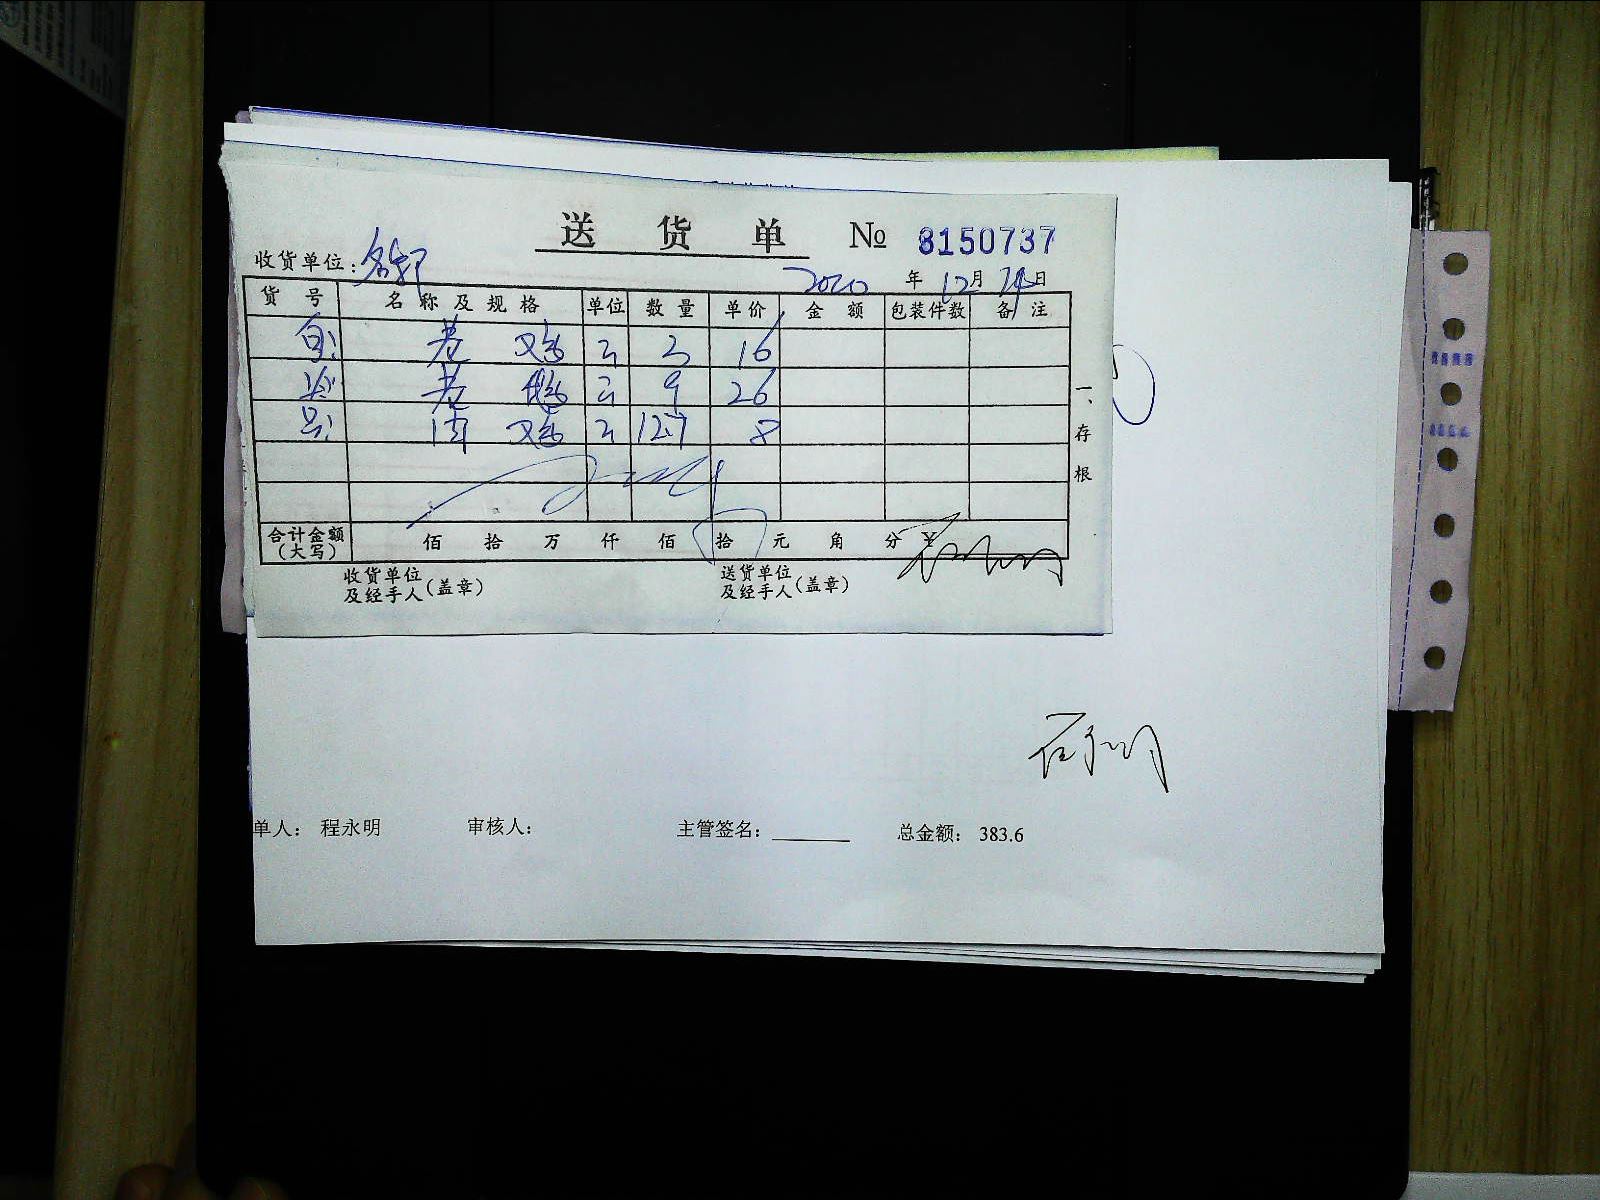 送货单 № 8150737
收货单位:
2020 年 12 月 24 日
货号 名称及规格 单位 数量 单价 金额 包装件数 备注
老鸡 3 16
老鸭 9 26
肉鸡 12.7 8
一、存根
合计金额(大写) 佰 拾 万 仟 佰 拾 元 角 分 ¥
收货单位及经手人(盖章) 送货单位及经手人(盖章)
单人: 程永明 审核人: 主管签名: 总金额: 383.6